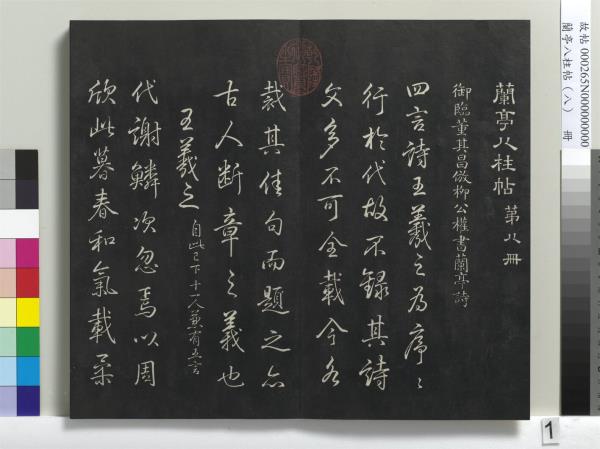 蘭亭八柱帖 第八冊
御臨董其昌倣柳公權書蘭亭詩
四言詩王羲之為序ミ
行於代故不錄其詩
文多不可全載今各
裁其佳句而題之亦
古人斷章之義也
王羲之 自此已下十一人兼有五言
代謝鱗次忽焉以周
欣此暮春和氣載柔
故帖 000265N000000000
蘭亭八柱帖（八） 冊
1